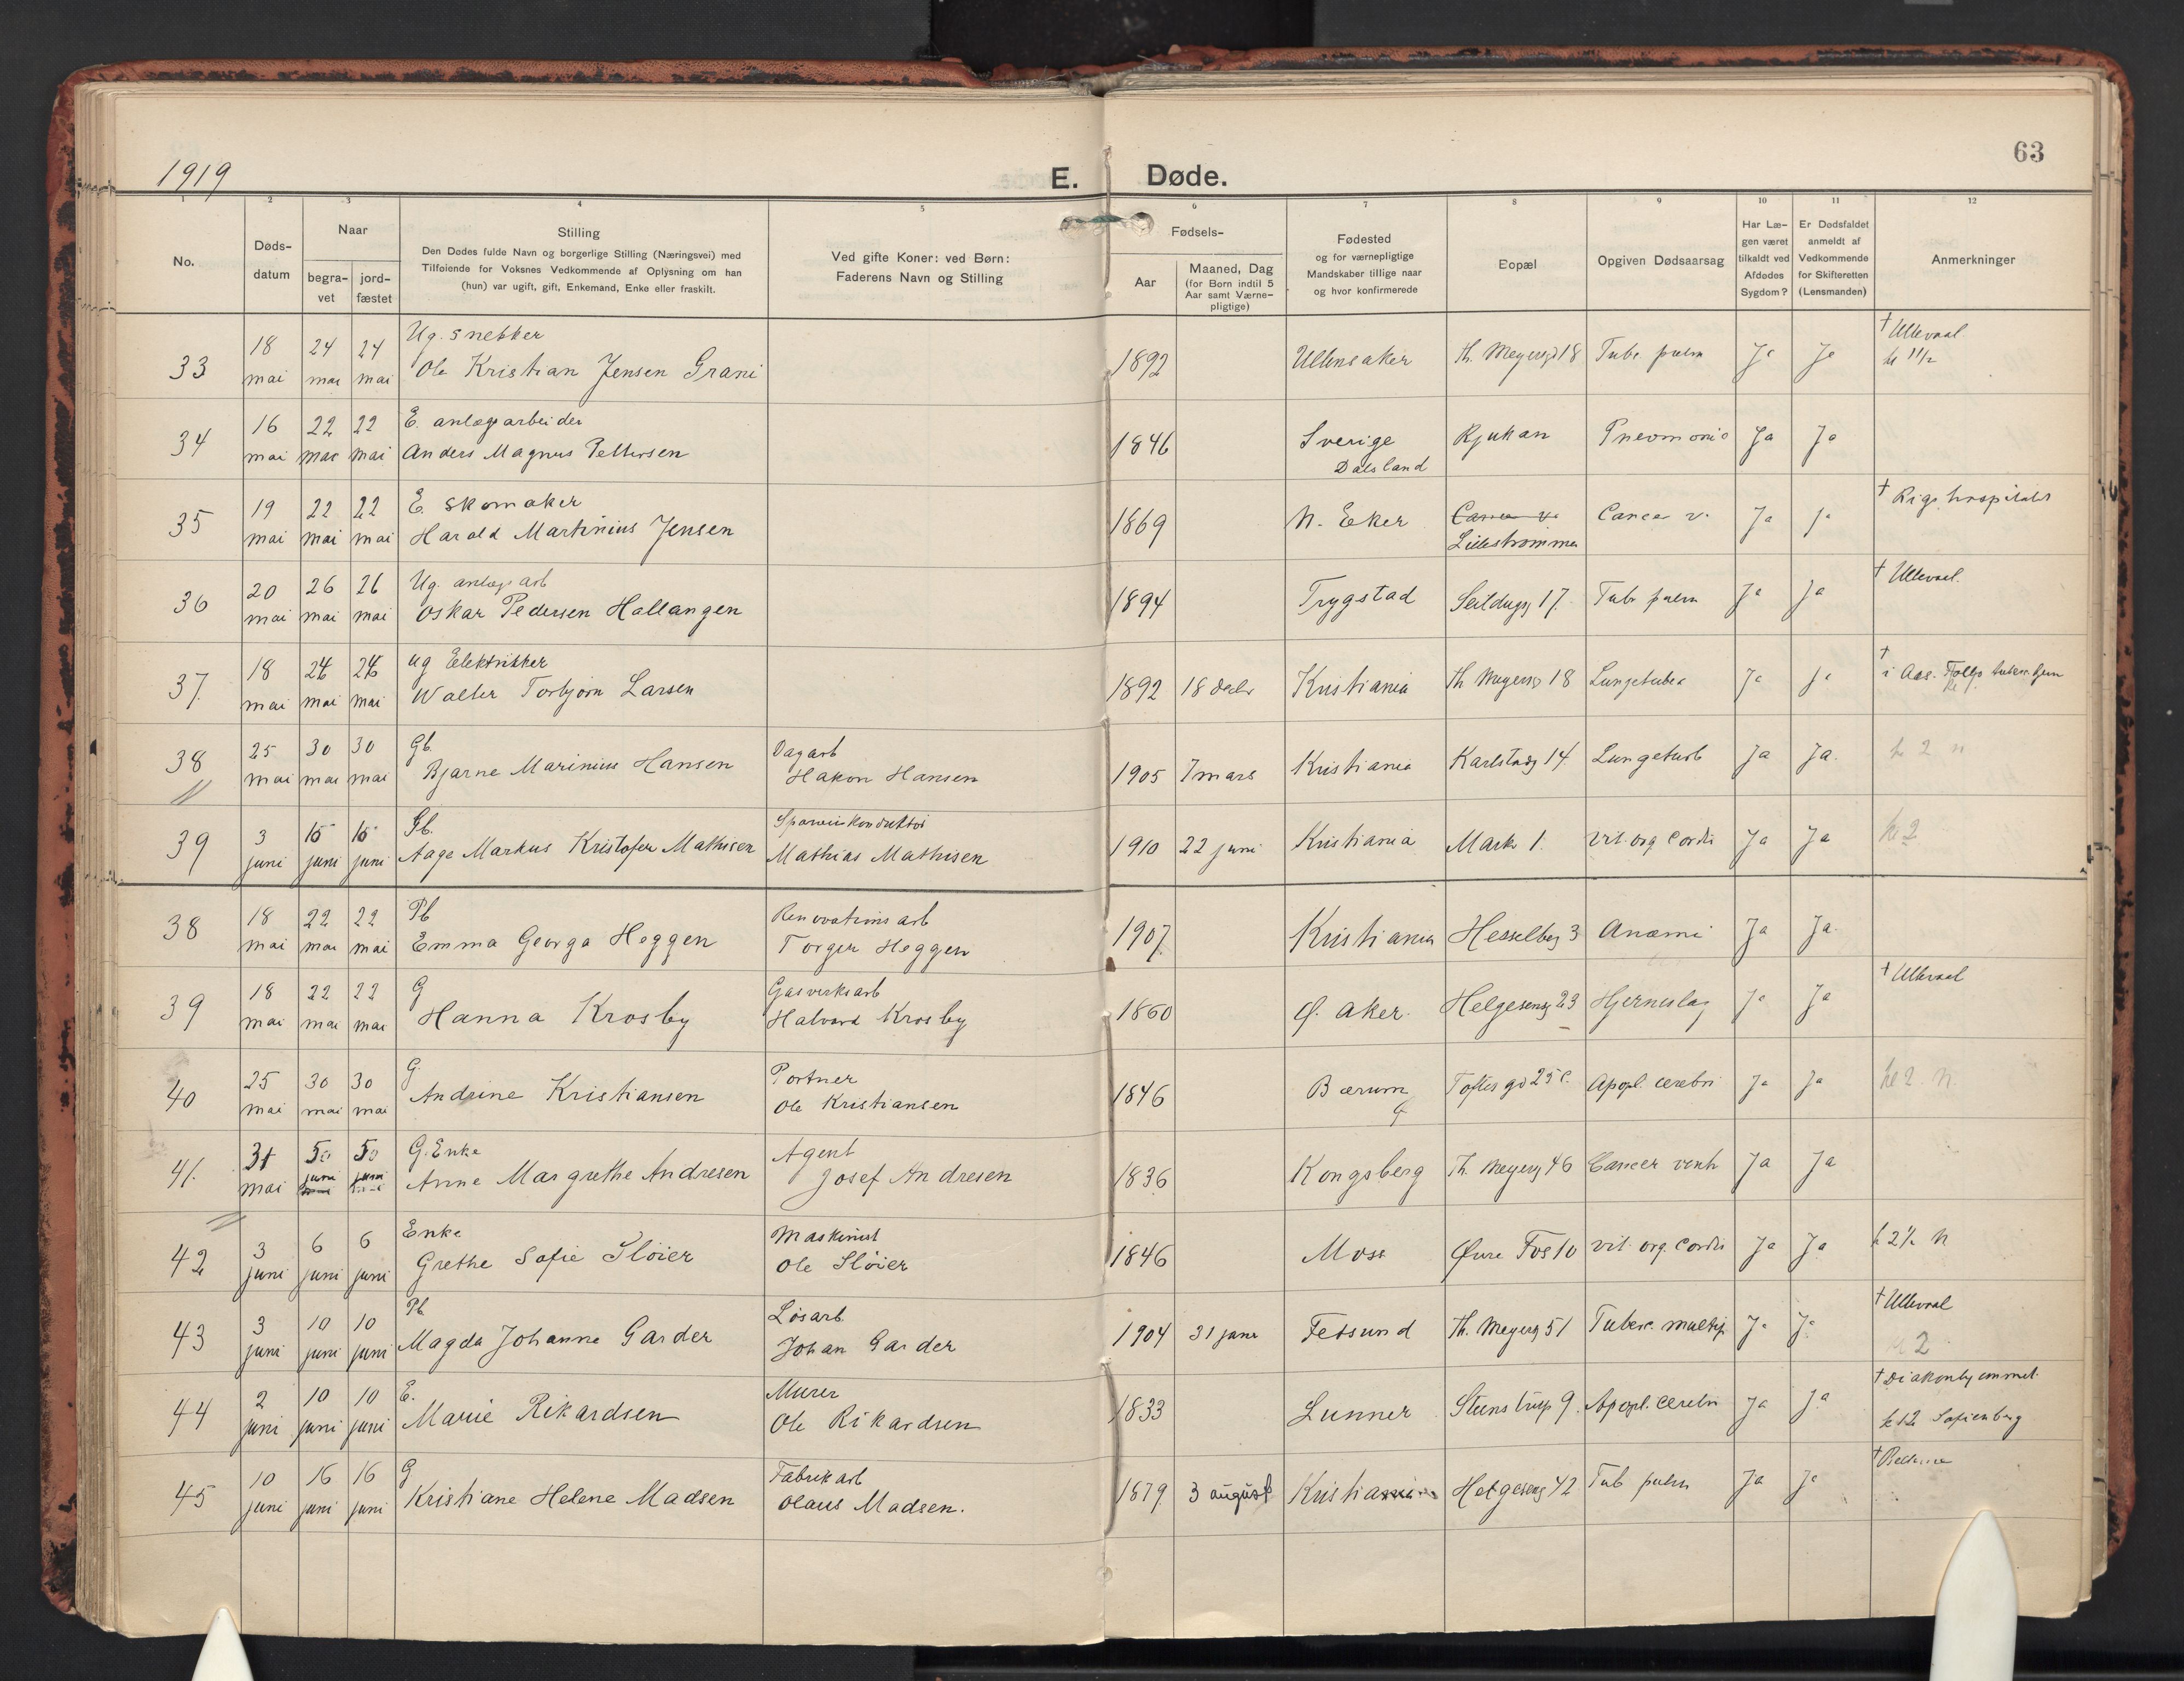 63
1919
E. Døde.
1 2 3 4 5 6 7 8 9 10 11 12
No.
Døds-
datum
Naar
begra-
vet
jord-
fæstet
Stilling
Den Dødes fulde Navn og borgerlige Stilling (Næringsvei) med
Tilføiende for Voksnes Vedkommende af Oplysning om han
(hun) var ugift, gift, Enkemand, Enke eller fraskilt.
Ved gifte Koner: ved Børn:
Faderens Navn og Stilling
Fødsels-
Aar
Maaned, Dag
(for Børn indtil 5
Aar samt Værne-
pligtige)
Fødested
og for værnepligtige
Mandskaber tillige naar
og hvor konfirmerede
Bopæl
Opgiven Dødsaarsag
Har Læ-
gen været
tilkaldt ved
Afdødes
Sygdom?
Er Dødsfaldet
anmeldt af
Vedkommende
for Skifteretten
(Lensmanden)
Anmerkninger
18 24 24 Ug. snekker † Ullevaal
33 mai mai mai Ole Kristian Jensen Grani 1892 Ullensaker Th. Meyersgd 18 Tube. pulm Ja Ja kl 11½
16 22 22 E. anlægsarbeider
34 mai mai mai Anders Magnus Pettersen 1846 Sverige Rjukan Pneumoni Ja Ja
Dalsland
19 22 22 E. Skomaker † Rigshospitalet
35 mai mai mai Harald Martinius Jensen 1869 N. Eker Cancer v. Cancer v. Ja Ja
Lillestrømmen
20 26 26 Ug. anlægs arb † Ullevaal.
36 mai mai mai Oskar Pedersen Hallangen 1894 Trygstad Seildugsg 17. Tub pulm Ja Ja
18 24 24 Ug Elektrikker †
37 mai mai mai Walter Torbjørn Larsen 1892 18 decbr Kristiania Th Meyersg 18 Lungetuberk Ja Ja i Aas.
25 30 30 Gb. Dagarb
38 mai mai mai Bjarne Marinius Hansen Hakon Hansen 1905 7 mars Kristiania Karlstadg 14. Lungeturb Ja Ja. kl 2 n
3 16 16 Gb. Sporveiskonduktør
39 juni juni juni Aage Markus Kristofer Mathisen Mathias Mathisen 1910 22 juni Kristiania Markv 1. vit. org cordis Ja Ja kl 2
18 22 22 Pb Renovations arb
38 mai mai mai Emma Georga Heggen Torger Heggen 1907. Kristiania Hesselbg 3 Anæmi Ja Ja.
18 22 22 G Gasverksarb † Ullevaal
39 mai mai mai Hanna Krosby Halvard Krosby 1860 Ø. Aker. Helgesensg 23 Hjerneslag Ja Ja
25 30 30 G Portner
40 mai mai mai Andrine Kristiansen Ole Kristiansen 1846 Bærum Toftes gd 25 c. Apopl. cerebri Ja Ja kl 2. n.
31 5 5 G. Enke Agent
41. mai juni juni Anne Margrethe Andresen Josef Andresen 1836 Kongsberg Th. Meyersg 46 Cancer ventr Ja Ja
3 6 6 Enke Maskinist
42 juni juni juni Grethe Sofie Sløier Ole Sløier 1846 Moss Øvre Fos 10 vit. org. cordis Ja Ja k 2½ n
3 10 10 Pb Løsarb † Ullevaal
43 juni juni juni Magda Johanne Garder Johan Garder 1904 31 janr Fetsund Th. Meyersg 51 Tuberc. multip Ja Ja kl 2
2 10 10 E. Murer † Diakonhjemmet.
44 juni juni juni Marie Rikardsen Ole Rikardsen 1833 Lunner Steenstrup 9. Apopl. cerebri Ja Ja kl 2 Sofienberg
10 16 16 G Fabrik arb
45 juni juni juni Kristiane Helene Madsen Olaus Madsen. 1879 3 august Kristiania Helgesensg 42 Tub pulm Ja Ja